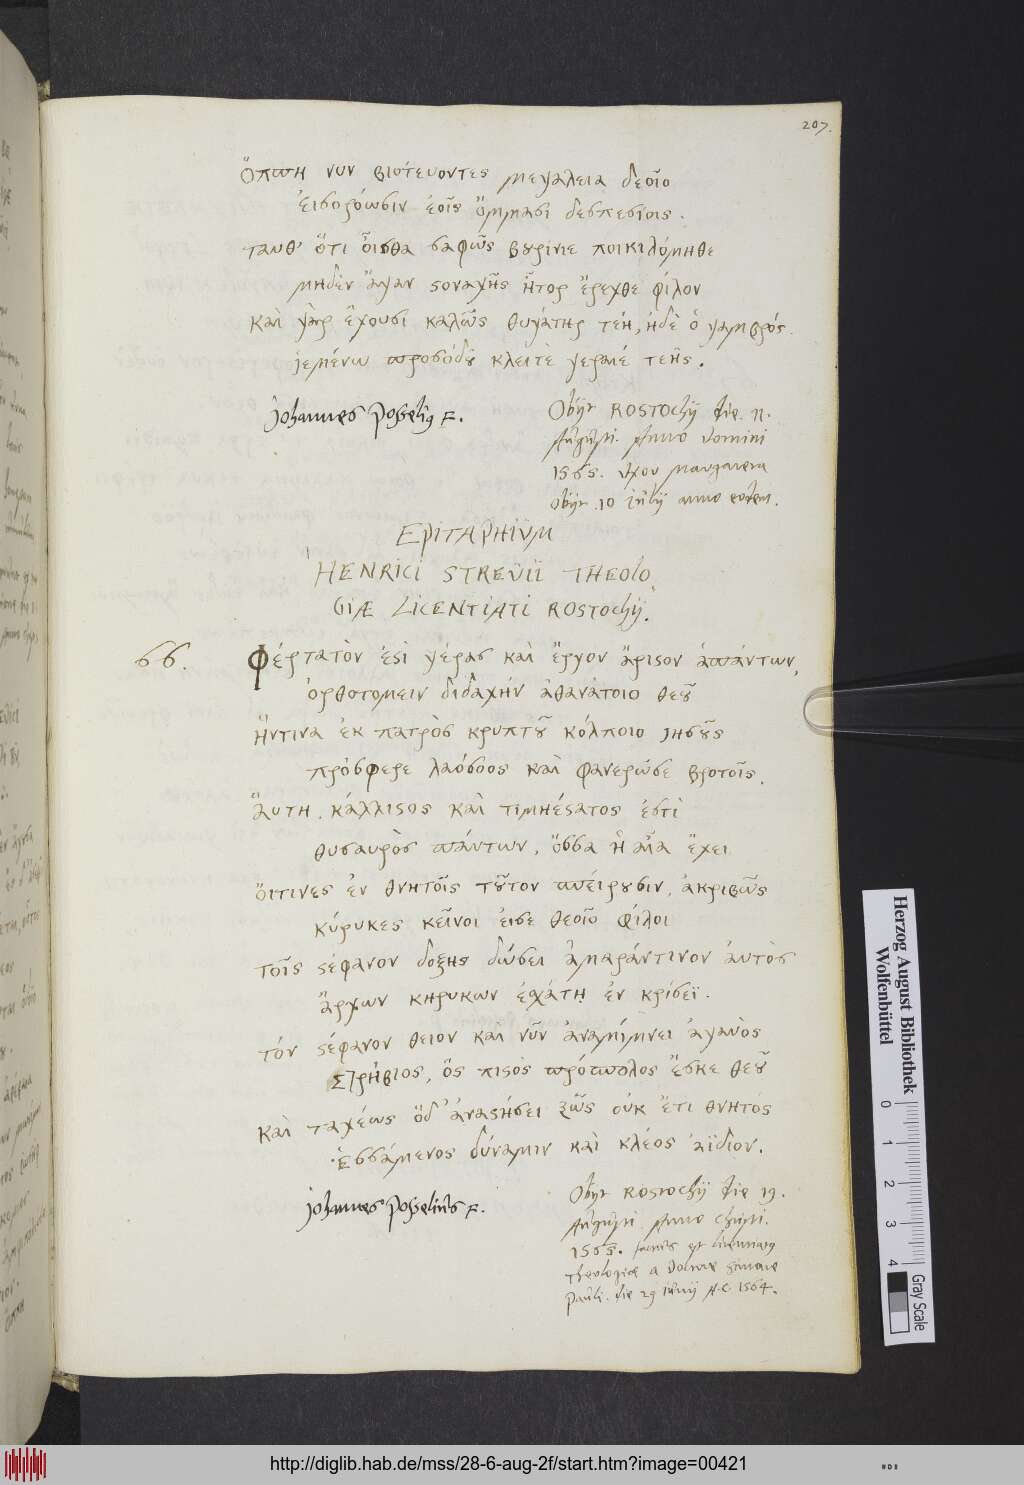 207.
ὅπωη νυν βιοτεύοντες μεγαλεια θεοῖο
εἰσορόωσιν ἑοῖς ὄμμασι θεσπεσίοις.
ταυθ' ὅτι οἶσθα σαφῶς βυρίνιε ποικιλόμηθε
μηδὲν ἄγαν στοναχῆς ἦτορ ἔρεχθε φίλον
καὶ γὰρ ἔχουσι καλῶς θυγάτηρ τεή, ἠδὲ ὁ γαμβρός.
ἱεμένω προσόδου κλειτὲ γεραιέ τεῆς.
Johannes Posselius F.
Obijt ROSTOCHij die. 11.
Augusti. Anno Domini
1565. Vxor Margareta
Obijt. 10 iulij anno eodem.
EPITAPHIUM
HENRICI STREUII THEOLO
GIÆ LICENTIATI ROSTOCHij.
66.
Φέρτατὸν ἐστὶ γέρας καὶ ἔργον ἄριστον ἁπάντων,
ὀρθοτομειν διδαχήν ἀθανάτοιο θεοῦ
Ἥντινα ἐκ πατρὸς κρυπτοῦ κόλποιο ἰησοῦς
πρόσφερε λαόσοος καὶ φανερώσε βροτοῖς.
ἅυτη κάλλιστος καὶ τιμηέστατος ἐστὶ
θυσαυρὸς πάντων, ὅσσα ἡ αἶα ἔχει
ὅιτινες ἐν θνητοῖς τοῦτον σπείρουσιν, ἀκριβῶς
κύρυκες κεῖνοι ἐισε θεοῖο φίλοι
τοῖς στέφανον δοξης δώσει ἀμαράντινον ἀυτὸς
ἄρχων κηρυκων ἐσχάτῃ ἐν κρίσεϊ.
τόν στέφανον θειον καὶ νῦν ἀναμίμνει ἀγαυὸς
Στρήβιος, ὃς πιστὸς πρόπολος ἔσκε θεοῦ
Καὶ ταχέως ὅδ' ἀναστήσει ζῶς οὐκ ἔτι θνητός
Ἑσσάμενος δύναμιν καὶ κλέος ἀΐδιον.
Johannes Posselius F.
Obijt ROSTOCHij die 19.
Augusti. Anno Christi.
1565. factus est licentiatus
Theologiæ a Doctore Simone
Pauli. die 29 iunij A.C. 1564.
Herzog August Bibliothek
Wolfenbüttel
0 1 2 3 4 Gray Scale
http://diglib.hab.de/mss/28-6-aug-2f/start.htm?image=00421